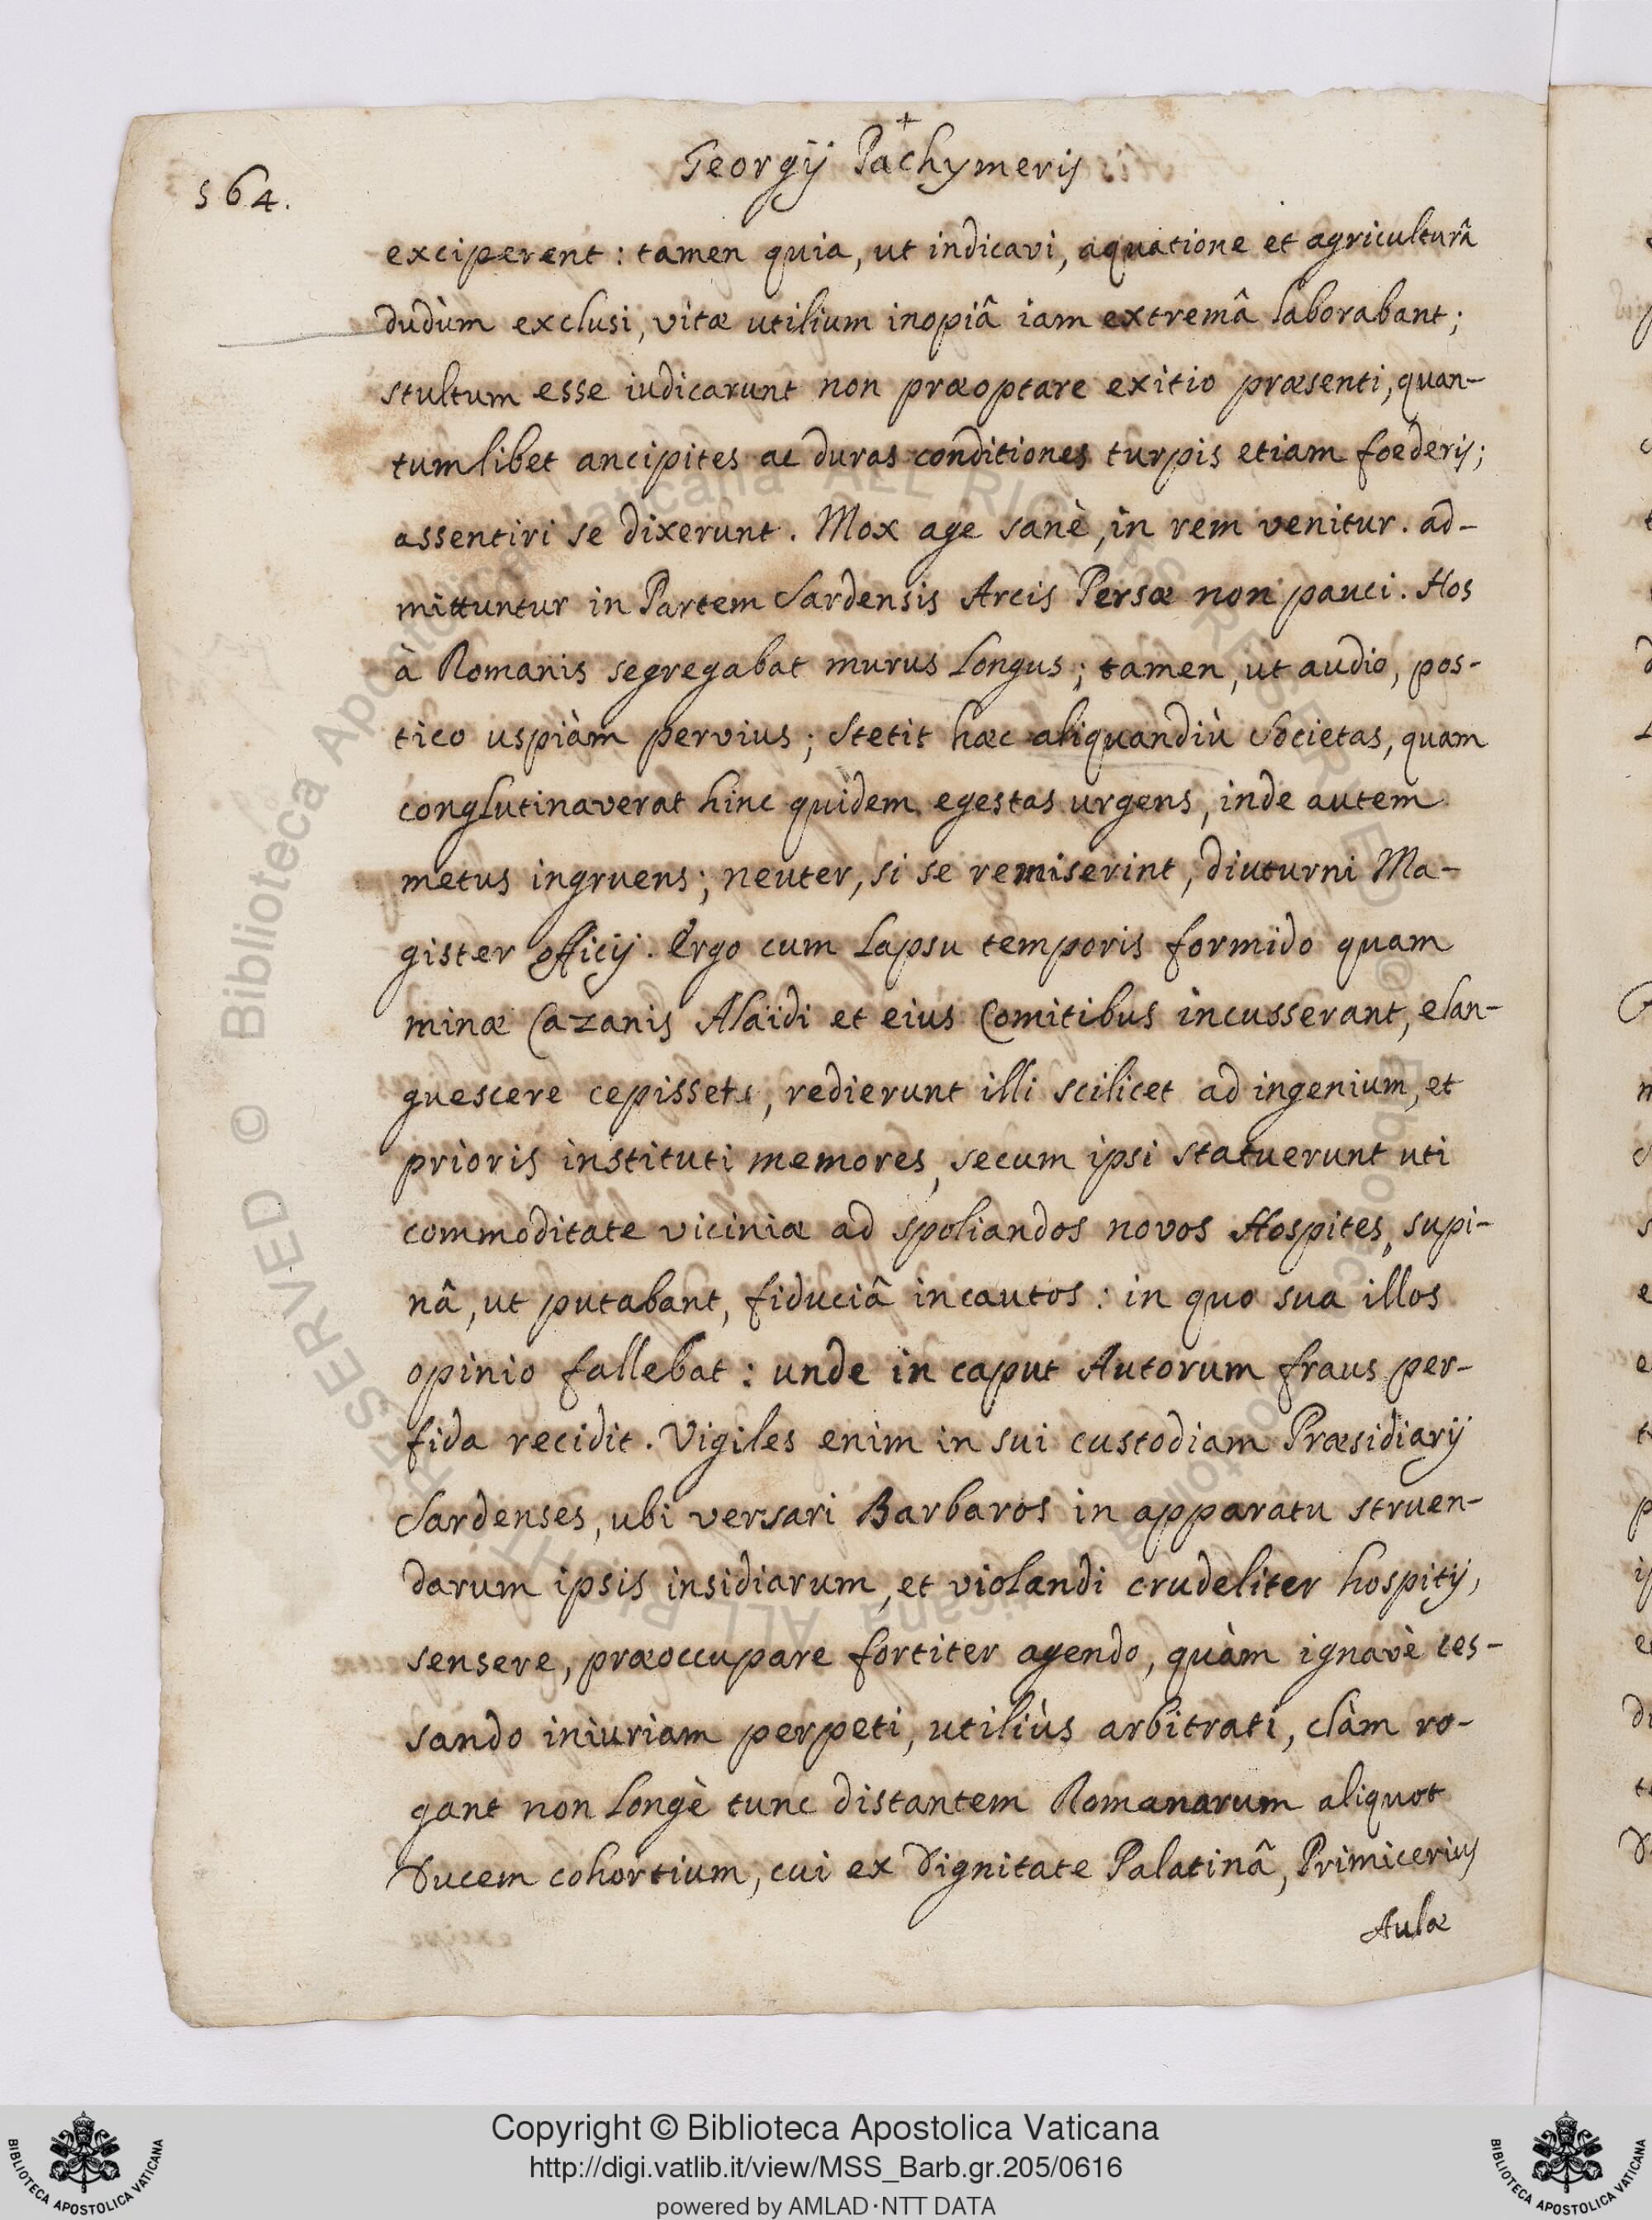 +
Georgij Pachymeris
564.
exciperent: tamen quia, ut indicavi, aquatione et agriculturâ
dudùm exclusi, vitæ utilium inopiâ iam extremâ laborabant;
stultum esse iudicarunt non præoptare exitio præsenti, quan-
tumlibet ancipites ac duras conditiones turpis etiam foederis;
assentiri se dixerunt. Mox age sanè, in rem venitur. ad-
mittuntur in Partem Sardensis Arcis Persæ non pauci. Hos
à Romanis segregabat murus longus; tamen, ut audio, pos-
tico uspiàm pervius; Stetit hæc aliquandiù Societas, quam
conglutinaverat hinc quidem egestas urgens, inde autem
metus ingruens; neuter, si se remiserint, diuturni Ma-
gister officij. Ergo cum lapsu temporis formido quam
minæ Cazanis Alaidi et eius Comitibus incusserant, elan-
guescere cepisset, redierunt illi scilicet ad ingenium, et
prioris instituti memores, secum ipsi statuerunt uti
commoditate viciniæ ad spoliandos novos Hospites, supi-
nâ, ut putabant, fiduciâ incautos: in quo sua illos
opinio fallebat: unde in caput Autorum fraus per-
fida recidit. Vigiles enim in sui custodiam Præsidiarij
Sardenses, ubi versari Barbaros in apparatu struen-
darum ipsis insidiarum, et violandi crudeliter hospitij,
sensere, præoccupare fortiter agendo, quàm ignavè ces-
sando iniuriam perpeti, utiliùs arbitrati, clàm ro-
gant non longè tunc distantem Romanarum aliquot
Ducem cohortium, cui ex Dignitate Palatinâ, Primicerius
Aulæ
Copyright © Biblioteca Apostolica Vaticana
http://digi.vatlib.it/view/MSS_Barb.gr.205/0616
powered by AMLAD·NTT DATA
BIBLIOTECA APOSTOLICA VATICANA
BIBLIOTECA APOSTOLICA VATICANA